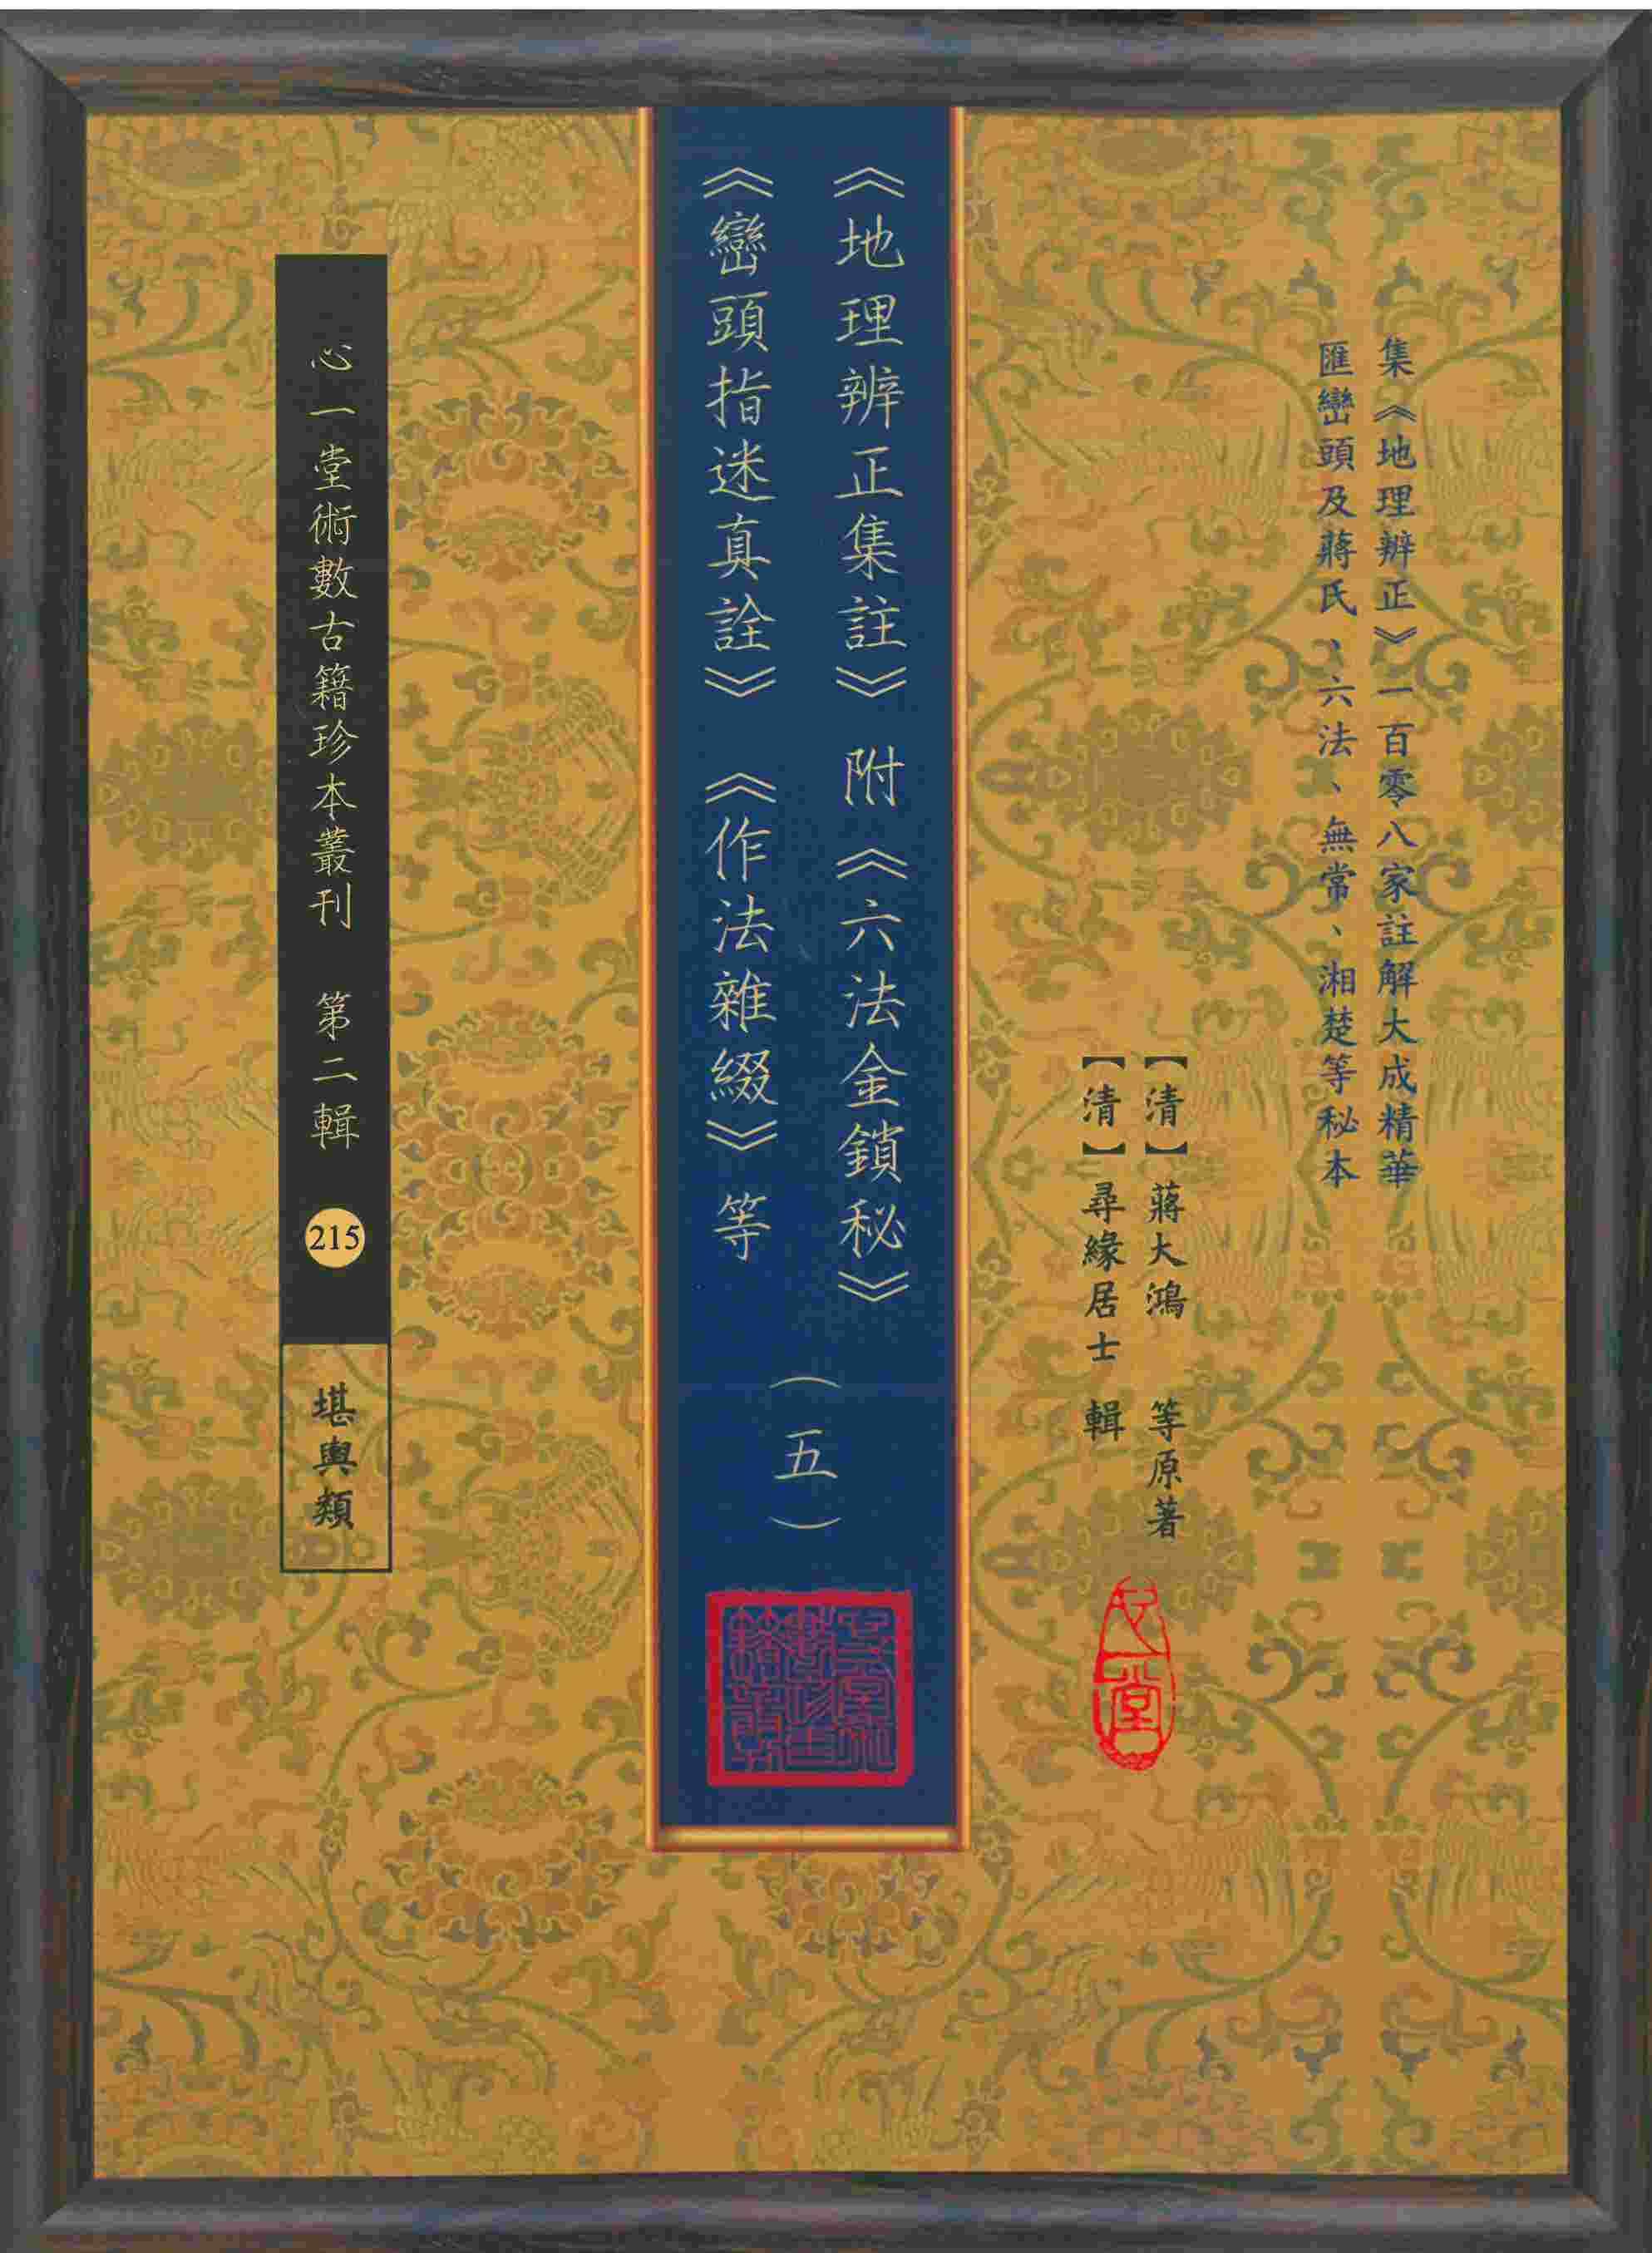 集《地理辨正》一百零八家註解大成精華
匯巒頭及蔣氏、六法、無常、湘楚等秘本
【清】蔣大鴻 等原著
【清】尋緣居士 輯
《地理辨正集註》附《六法金鎖秘》
《巒頭指迷真詮》《作法雜綴》等
（五）
心一堂術數古籍珍本叢刊 第二輯 215
堪輿類
心一堂